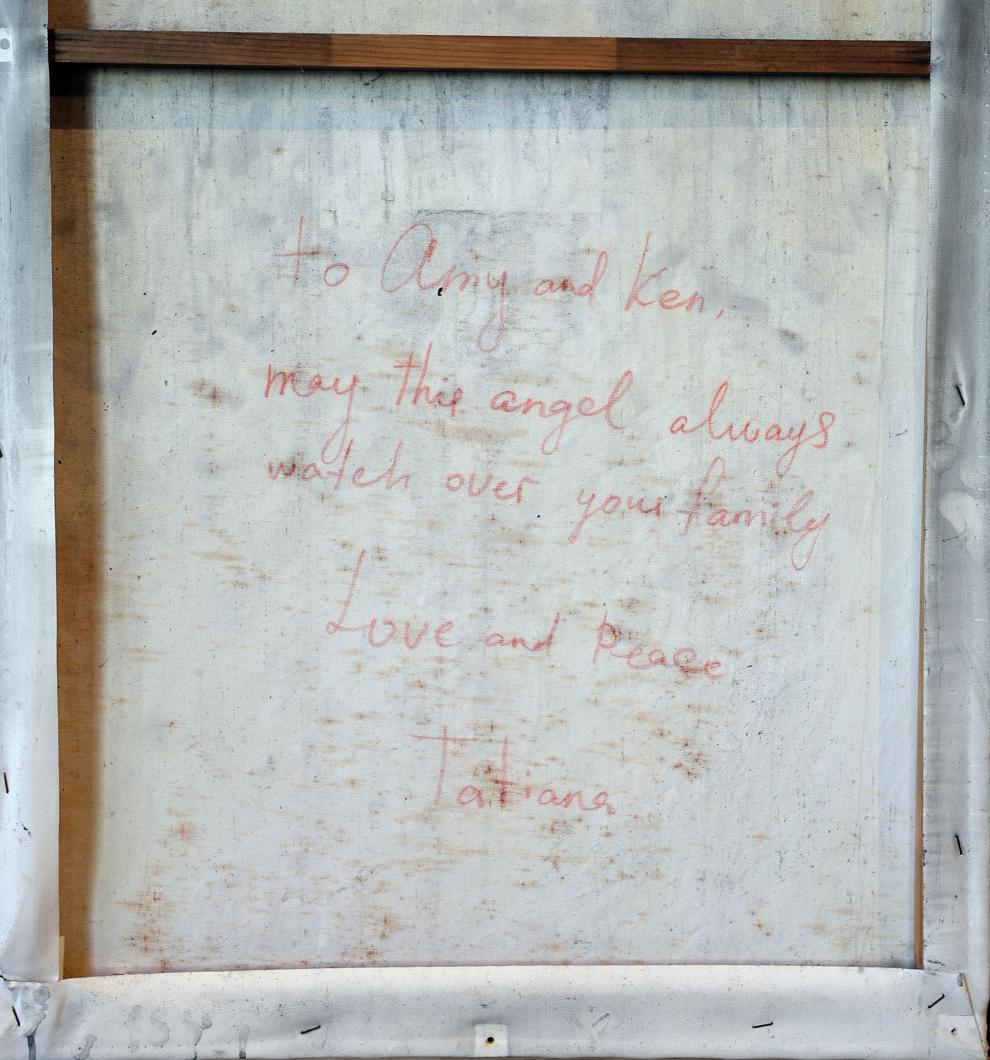 to Amy and Ken,
may this angel always
watch over your family
Love and Peace
Tatiana